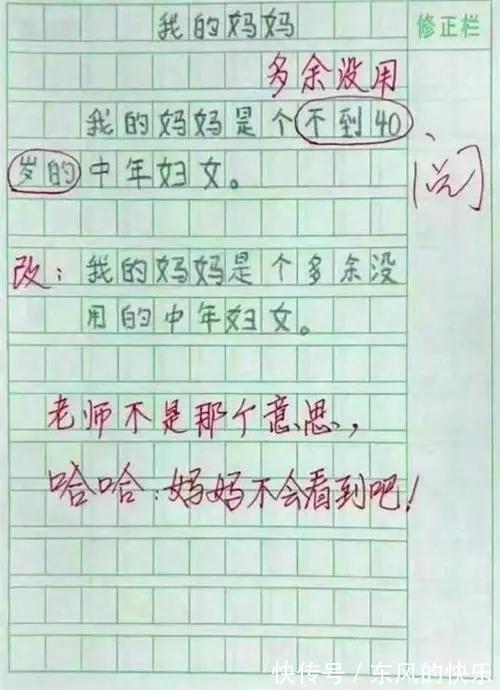 我的妈妈
修正栏
多余没用
我的妈妈是个不到40
岁的中年妇女。
阅
改：我的妈妈是个多余没
用的中年妇女。
老师不是那个意思，
哈哈：妈妈不会看到吧！
快传号／东风的快乐